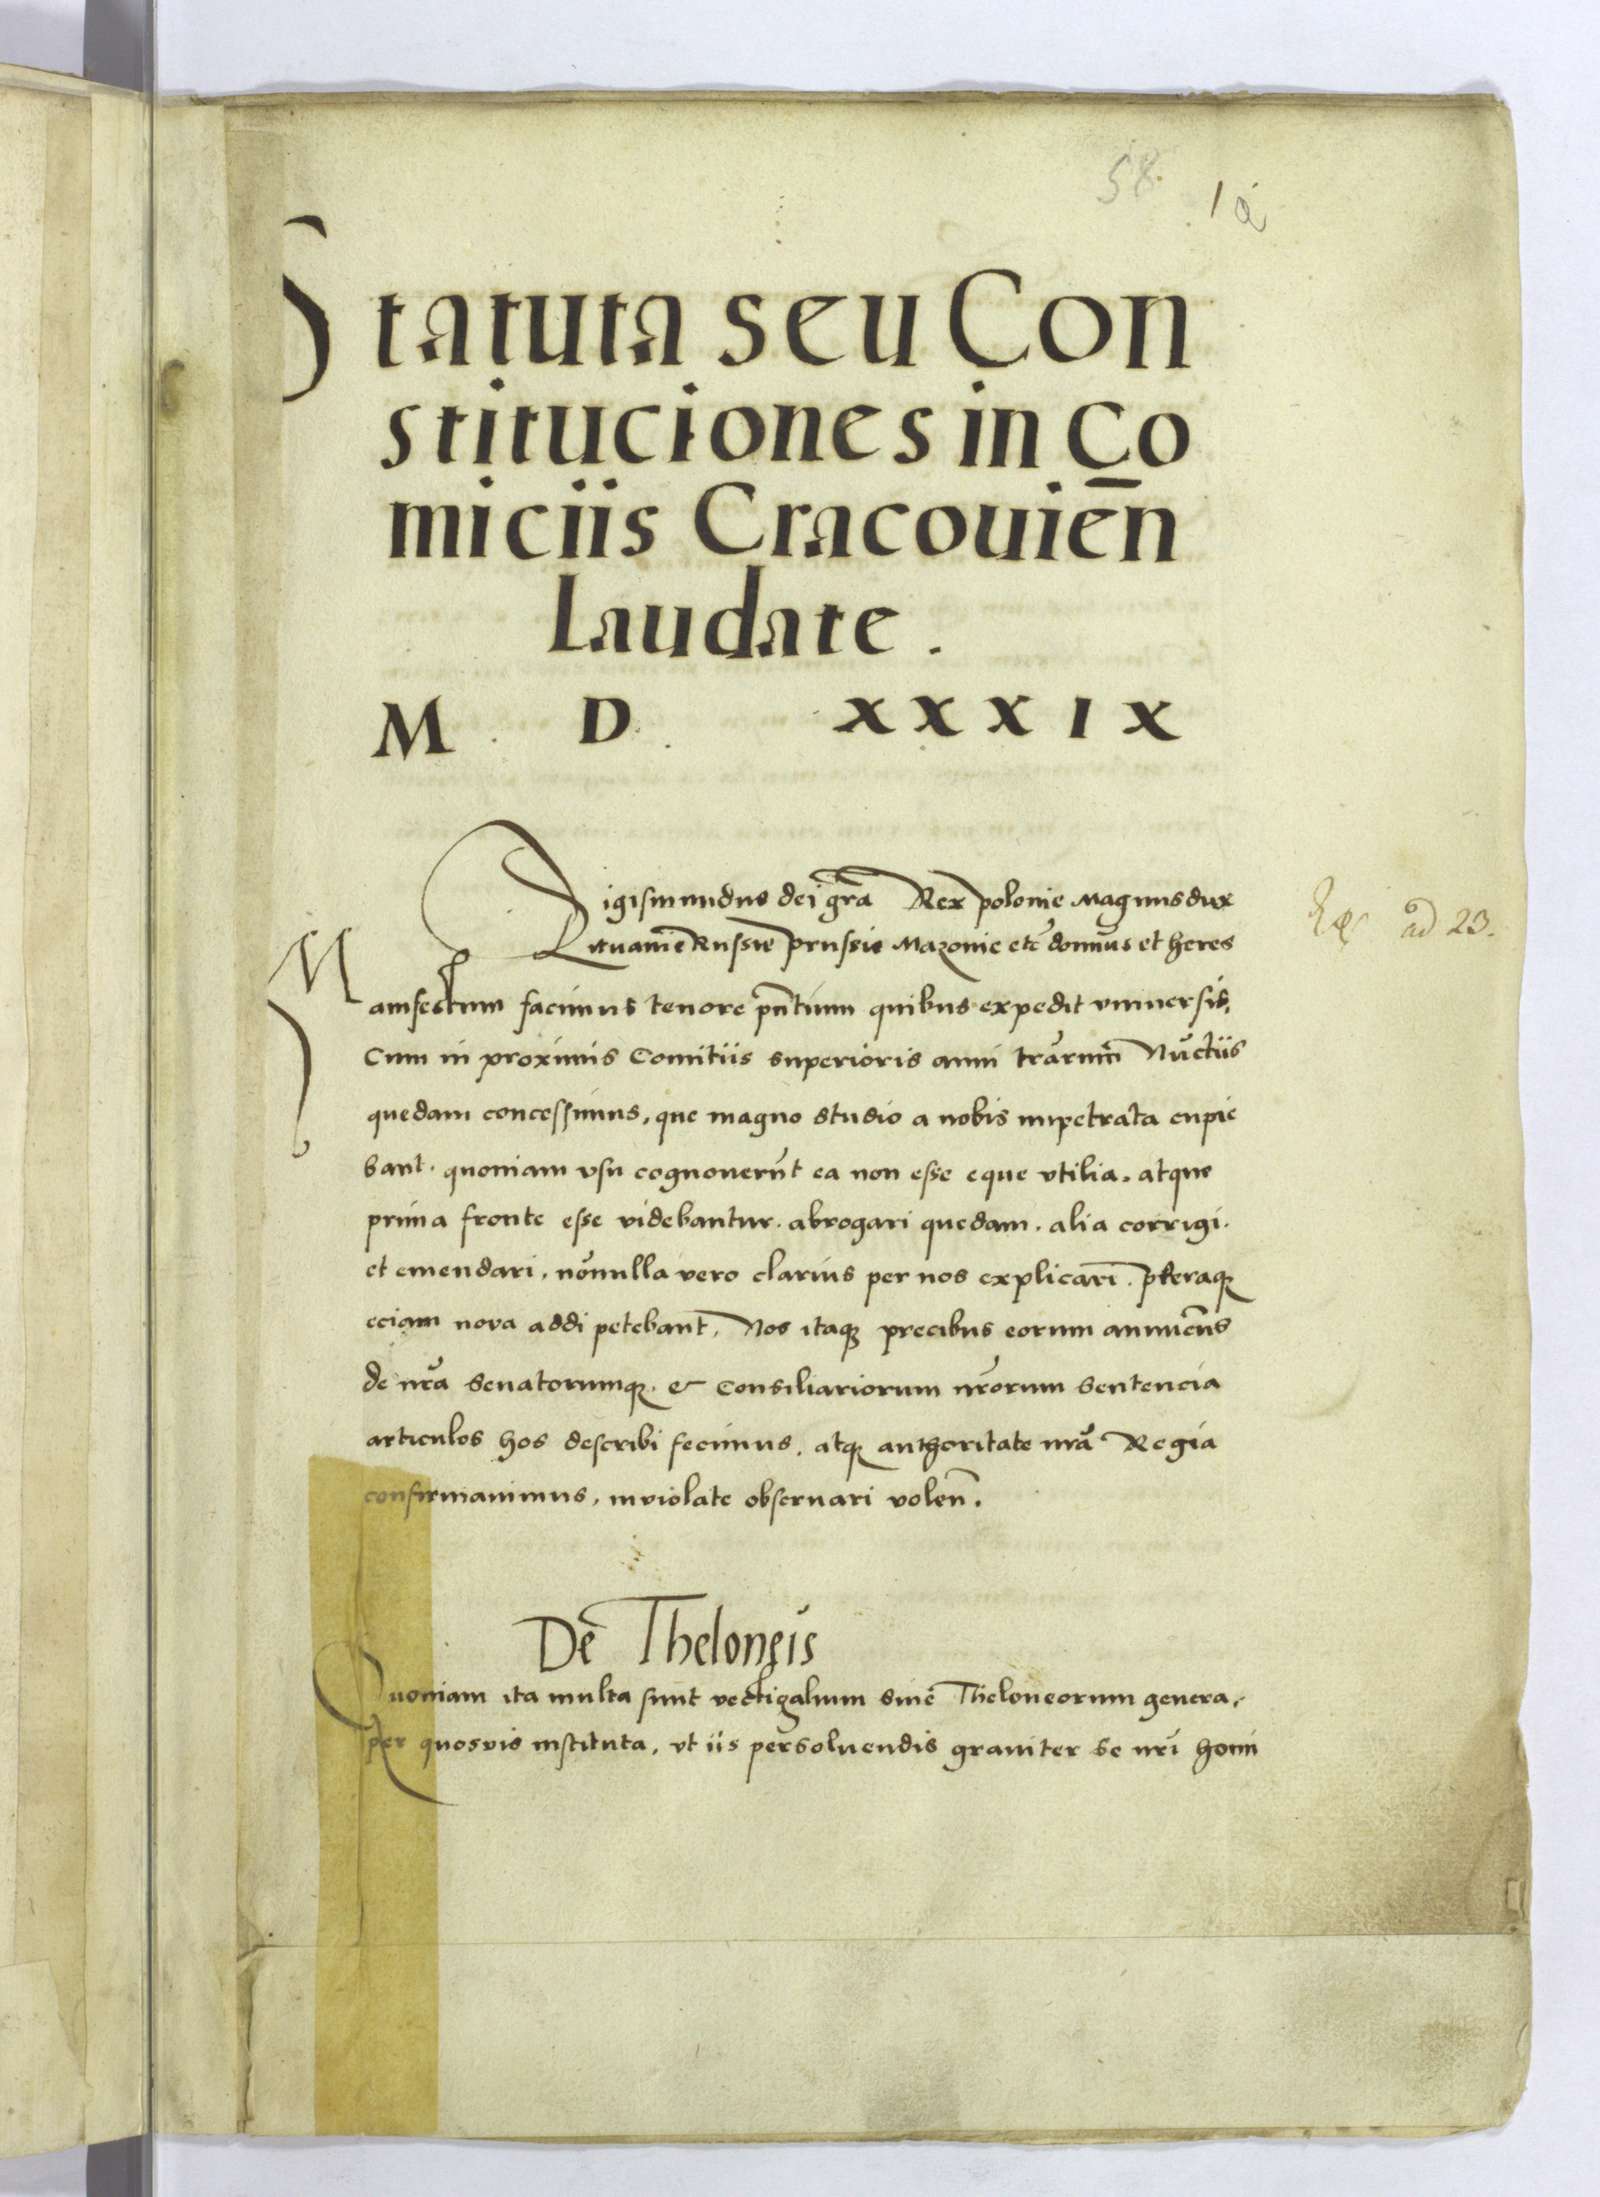 58.
1 a
Statuta seu Con
stituciones in Co
miciis Cracouien̄
Laudate.
M. D. XXXIX
Sigismundus dei gr̄a Rex polonie Magnus dux
Lituanie Russie prussie Mazouie etc̄ domn̄us et heres
Manifestum facimus tenore pn̄tium quibus expedit vniuersis,
Cum in proximis Comitiis superioris anni tr̄arum Nūctiis
quedam concessimus, que magno studio a nobis impetrata cupie
bant. quoniam vsu cognouerūt ea non esse eque vtilia. atque
prima fronte esse videbantur. abrogari quedam. alia corrigi.
et emendari, nōnulla vero clarius per nos explicari. pleraq₃
eciam nova addi petebant, Nos itaq₃ precibus eorum annuen̄s
de nr̄a Senatorumq₃ & Consiliariorum nr̄orum Sentencia
articulos hos describi fecimus, atq₃ authoritate nr̄a Regia
confirmauimus, inviolate obseruari volen̄.
ad 23.
De Theloneis
Quoniam ita multa sunt vectigalium siue Theloneorum genera,
per quosvis instituta, vt iis persoluendis grauiter se nr̄i homi